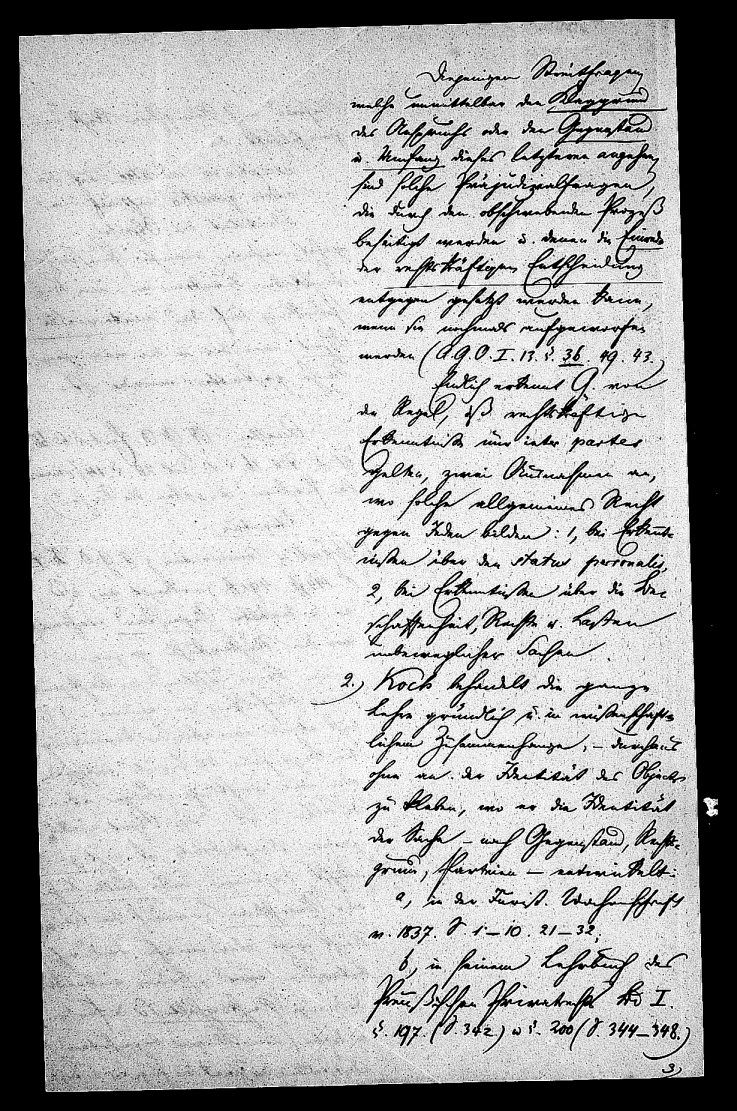 Diejenigen Streitfragen,
welche unmittelbar den Klaggrund
des Anspruchs oder den Gegenstand
u. Umfang dieses letzteren angehen,
sind solche Präjudizialfragen,
die durch den obschwebenden Prozeß
beseitigt werden u. denen die Einrede
der rechtskräftigen Entscheidung
entgegen gesetzt werden kann,
wenn sie nochmals aufgeworfen
werden (A.G.O. I. 13. §. 36. 49. 43.)
Endlich erkennt G. von
der Regel, daß rechtskräftige
Erkenntniße nur inter partes
gelten, zwei Ausnahmen an,
wo solche allgemeines Recht
gegen Jeden bilden: 1, bei Erkennt-
nißen über den status personalis,
2, bei Erkentnißen über die Be-
schaffenheit, Rechte u. Lasten
unbeweglicher Sachen.
2.) Koch behandelt die ganze
Lehre gründlich u. in wissenschaft-
lichem Zusammenhange, – durchaus
ohne an der Identität des Objects
zu kleben, wo er die Identität
der Sache – nach Gegenstand, Rechts-
grund, Parteien – entwickelt:
a, in der Jurist. Wochenschrift
v. 1837. S. 1–10. 21–32,
b, in seinem Lehrbuch des
Preußischen Privatrechts Bd I.
§. 197. (S. 342) u §. 200 (S. 344–348.)
3)